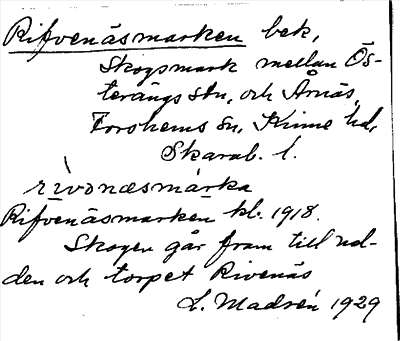 Rifvenäsmarken bek,
Skogsmark mellan Ös-
terängs stn, och Årnäs,
Forshems sn, Kinne hd,
Skarab. l.
rìvənæsmárka
Rifvenäsmarken kl. 1918.
Skogen går fram till ud-
den och torpet Rivenäs
L. Madsén 1929